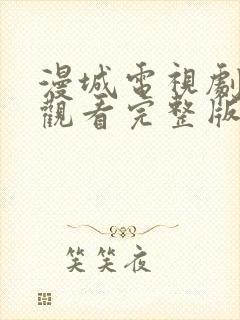 漫城電視劇
觀看完整版
笑笑夜